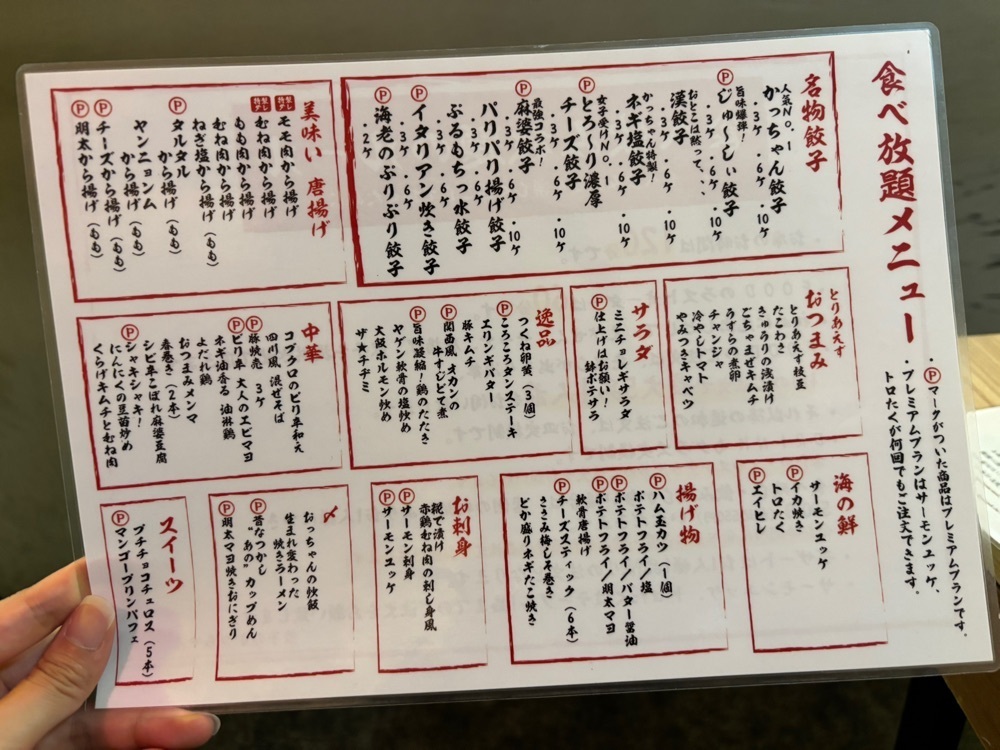 食べ放題メニュー
・Ⓟマークがついた商品はプレミアムプランです。
・プレミアムプランはサーモンユッケ、
トロたくが何回でもご注文できます。
名物餃子
人気No.1
かっちゃん餃子
・3ケ ・6ケ ・10ケ
旨味爆弾!
Ⓟじゅ〜しぃ餃子
・3ケ ・6ケ ・10ケ
おとこは黙って、、、
漢餃子
・3ケ ・6ケ ・10ケ
かっちゃん特製!
ネギ塩餃子
・3ケ ・6ケ ・10ケ
女子受けNo.1
Ⓟとろ〜り濃厚
チーズ餃子
・3ケ ・6ケ ・10ケ
最強コラボ!
Ⓟ麻婆餃子
・3ケ ・6ケ ・10ケ
パリパリ揚げ餃子
・3ケ ・6ケ
ぷるもちっ水餃子
・3ケ ・6ケ
Ⓟイタリアン炊き餃子
・3ケ ・6ケ
Ⓟ海老のぷりぷり餃子
・2ケ
美味い 唐揚げ
モモ肉から揚げ
むね肉から揚げ
もも肉から揚げ
むね肉から揚げ
ねぎ塩から揚げ (もも)
Ⓟタルタル
から揚げ (もも)
ヤンニョンム
から揚げ (もも)
Ⓟチーズから揚げ (もも)
Ⓟ明太から揚げ (もも)
とりあえず
おつまみ
とりあえず枝豆
たこわさ
きゅうりの浅漬け
ごちゃまぜキムチ
うずらの煮卵
チャンジャ
冷やしトマト
やみつきキャベツ
サラダ
ミニチョレギサラダ
Ⓟ仕上げはお願い!
鉢ポテサラ
逸品
つくね卵黄 (3個)
Ⓟころころタンステーキ
エリンギバター
豚キムチ
Ⓟ関西風 オカンの
牛すじどて煮
Ⓟ旨味凝縮!鶏のたたき
ヤゲン軟骨の塩炒め
大阪ホルモン炒め
ザ★チヂミ
中華
コブクロのピリ辛和え
四川風 混ぜそば
Ⓟ豚焼売 3ケ
Ⓟピリ辛 大人のエビマヨ
ネギ油香る 油淋鶏
よだれ鶏
おつまみメンマ
春巻き (2本)
シビ辛こぼれ麻婆豆腐
Ⓟシャキシャキ!
にんにくの豆苗炒め
くらげキムチとむね肉
海の鮮
サーモンユッケ
Ⓟイカ焼き
トロたく
Ⓟエイヒレ
揚げ物
Ⓟハム玉カツ (1個)
ポテトフライ/塩
Ⓟポテトフライ/バター醤油
Ⓟポテトフライ/明太マヨ
軟骨唐揚げ
Ⓟチーズスティック (6本)
ささみ梅しそ巻き
どか盛りネギたこ焼き
お刺身
糀で漬け
赤鶏むね肉の刺し身風
Ⓟサーモン刺身
Ⓟサーモンユッケ
〆
おっちゃんの炒飯
生まれ変わった
焼きラーメン
Ⓟ昔なつかし
"あの"カップめん
Ⓟ明太マヨ焼きおにぎり
スイーツ
プチチョコチュロス (5本)
Ⓟマンゴープリンパフェ